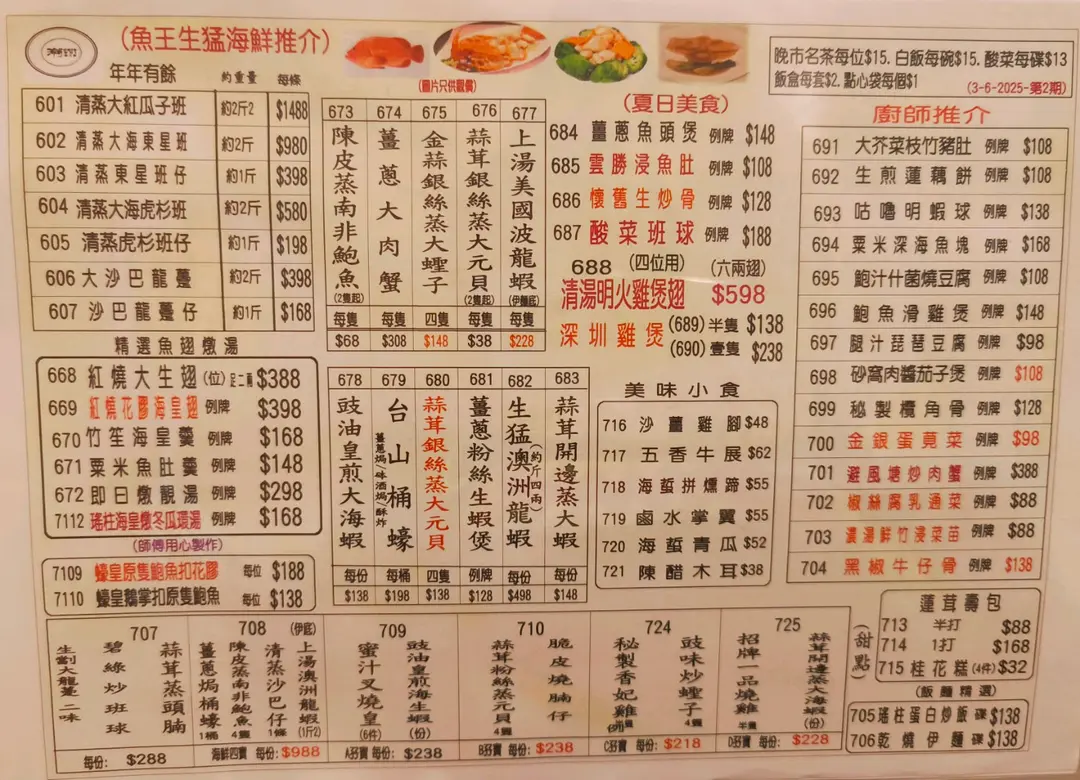 (魚王生猛海鮮推介)
年年有餘 約重量 每條
601 清蒸大紅瓜子班 約2斤2 $1488
602 清蒸大海東星班 約2斤 $980
603 清蒸東星班仔 約1斤 $398
604 清蒸大海虎杉班 約2斤 $580
605 清蒸虎杉班仔 約1斤 $198
606 大沙巴龍躉 約2斤 $398
607 沙巴龍躉仔 約1斤 $168
精選魚翅燉湯
668 紅燒大生翅(位) $388
669 紅燒花膠海皇翅 例牌 $398
670 竹笙海皇羹 例牌 $168
671 粟米魚肚羹 例牌 $148
672 即日燉靚湯 例牌 $298
7112 瑤柱海皇燉冬瓜環湯 例牌 $168
(師傅用心製作)
7109 蠔皇原隻鮑魚扣花膠 每位 $188
7110 蠔皇鵝掌扣原隻鮑魚 每位 $138
(圖片只供觀賞)
673 陳皮蒸南非鮑魚 (2隻起) 每隻 $68
674 薑蔥大肉蟹 每隻 $308
675 金蒜銀絲蒸大蟶子 四隻 $148
676 蒜茸銀絲蒸大元貝 (2隻起) 每隻 $38
677 上湯美國波龍蝦 (伊麵底) 每隻 $228
678 豉油皇煎大海蝦 每份 $138
679 台山桶蠔 薑蔥焗/砵酒焗/酥炸 每桶 $198
680 蒜茸銀絲蒸大元貝 四隻 $138
681 薑蔥粉絲生蝦煲 例牌 $128
682 生猛澳洲龍蝦 (約斤四兩) 每份 $498
683 蒜茸開邊蒸大蝦 每份 $148
(夏日美食)
684 薑蔥魚頭煲 例牌 $148
685 雲勝浸魚肚 例牌 $108
686 懷舊生炒骨 例牌 $128
687 酸菜班球 例牌 $188
688 (四位用) (六兩翅)
清湯明火雞煲翅 $598
深圳雞煲 (689) 半隻 $138
(690) 壹隻 $238
美味小食
716 沙薑雞腳 $48
717 五香牛展 $62
718 海蜇拼燻蹄 $55
719 鹵水掌翼 $55
720 海蜇青瓜 $52
721 陳醋木耳 $38
晚市名茶每位$15. 白飯每碗$15. 酸菜每碟$13
飯盒每套$2. 點心袋每個$1
(3-6-2025-第2期)
廚師推介
691 大芥菜枝竹豬肚 例牌 $108
692 生煎蓮藕餅 例牌 $108
693 咕嚕明蝦球 例牌 $138
694 粟米深海魚塊 例牌 $168
695 鮑汁什菌燒豆腐 例牌 $108
696 鮑魚滑雞煲 例牌 $148
697 腿汁琵琶豆腐 例牌 $98
698 砂窩肉醬茄子煲 例牌 $108
699 秘製欖角骨 例牌 $128
700 金銀蛋莧菜 例牌 $98
701 避風塘炒肉蟹 例牌 $388
702 椒絲腐乳通菜 例牌 $88
703 濃湯鮮竹浸菜苗 例牌 $88
704 黑椒牛仔骨 例牌 $138
707 生劏大龍躉二味 碧綠炒班球 蒜茸蒸頭腩
每份: $288
708 薑蔥焗桶蠔 1桶 陳皮蒸南非鮑魚 4隻 清蒸沙巴仔 1條 (伊底) 上湯澳洲龍蝦 (1斤2)
海鮮四寶 每份: $988
709 蜜汁叉燒皇 (6件) 豉油皇煎海生蝦 (份)
A孖寶 每份: $238
710 蒜茸粉絲蒸元貝 4隻 脆皮燒腩仔
B孖寶 每份: $238
724 秘製香妃雞 例 豉味炒蟶子 4隻
C孖寶 每份: $218
725 招牌一品燒雞 半隻 蒜茸開邊蒸大海蝦 (份)
D孖寶 每份: $228
(甜點)
蓮茸壽包
713 半打 $88
714 1打 $168
715 桂花糕(4件) $32
(飯麵精選)
705 瑤柱蛋白炒飯 碟 $138
706 乾燒伊麵 碟 $138